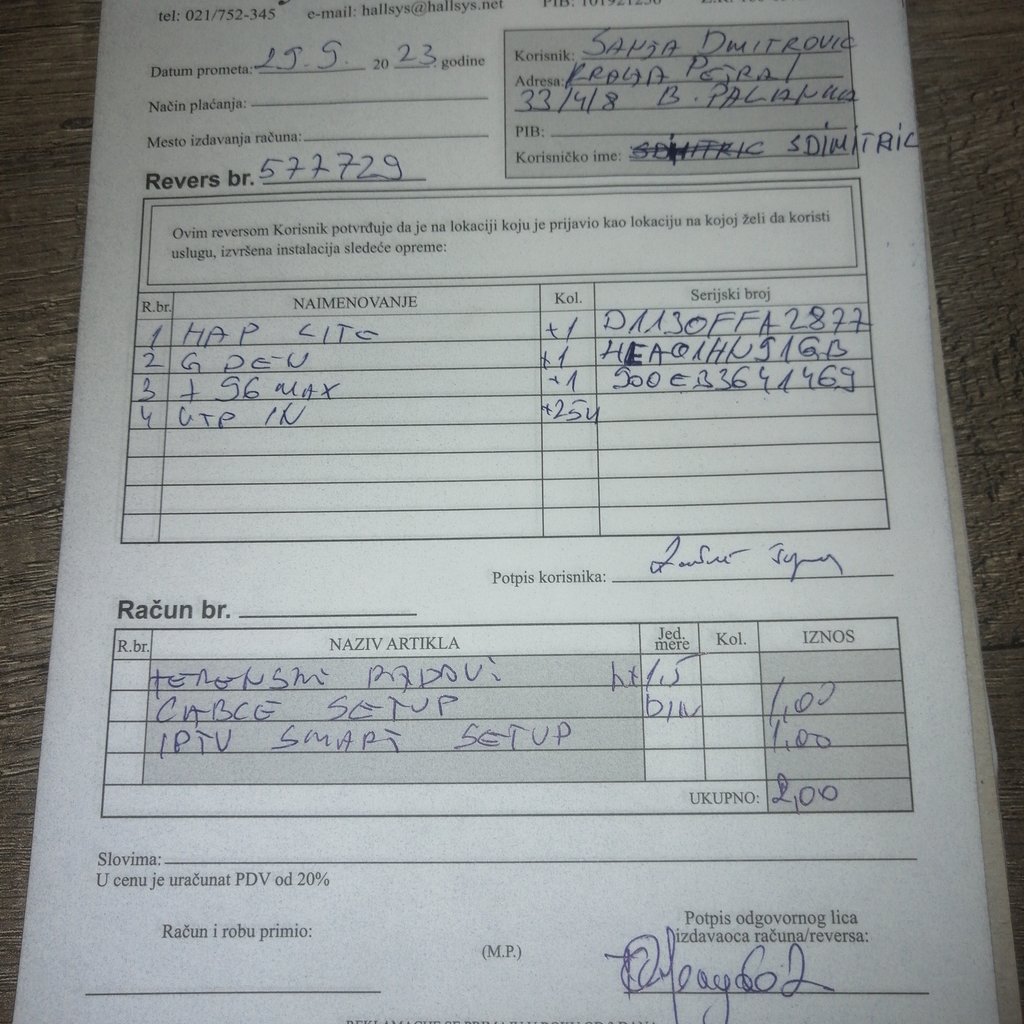 tel: 021/752-345 e-mail: hallsys@hallsys.net
Datum prometa: 29.9. 20 23. godine
Korisnik: SANJA DMITROVIC
Adresa: KRALJA PETRA I
Način plaćanja:
33/4/8 B. PALANKA
Mesto izdavanja računa:
PIB:
Korisničko ime: SDIMITRIC
Revers br. 577729
Ovim reversom Korisnik potvrđuje da je na lokaciji koju je prijavio kao lokaciju na kojoj želi da koristi
uslugu, izvršena instalacija sledeće opreme:
R.br. NAIMENOVANJE Kol. Serijski broj
1 HAP LITE +1 D1130FFA2877
2 G DEN +1 HEA01HN91GB
3 T 96 MAX +1 900EB3641469
4 UTP IN +25M
Potpis korisnika:
Račun br.
R.br. NAZIV ARTIKLA Jed. mere Kol. IZNOS
TERENSKI RADOVI h+1,5
CABCE SETUP DIN 1,00
IPTV SMART SETUP 1,00
UKUPNO: 2,00
Slovima:
U cenu je uračunat PDV od 20%
Račun i robu primio:
(M.P.)
Potpis odgovornog lica
izdavaoca računa/reversa: